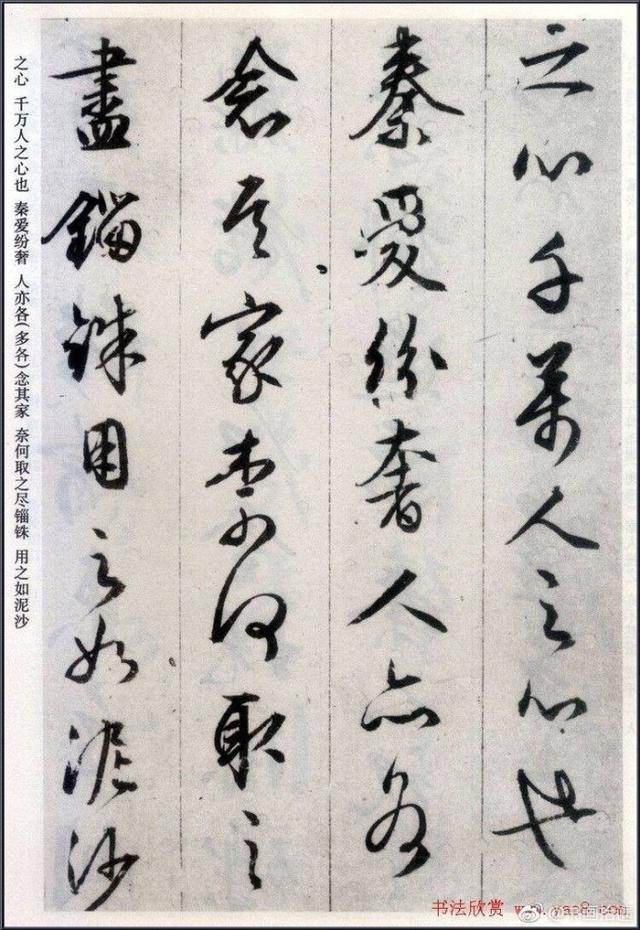 之心千萬人之心也
秦愛紛奢人亦各
念其家柰何取之
盡錙銖用之如泥沙
之心 千万人之心也 秦爱纷奢 人亦各(多各)念其家 奈何取之尽锱铢 用之如泥沙
书法欣赏 www.yac8.com